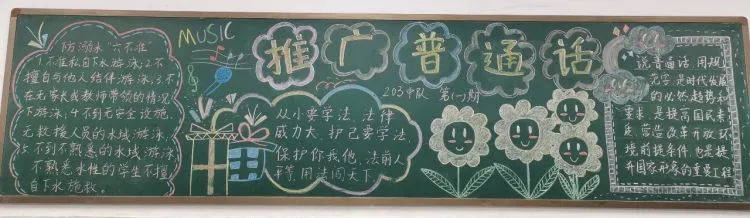 防溺水“六不准”
1.不准私自下水游泳;2.不
擅自与他人结伴游泳;3.不
在无家长或教师带领的情况
下游泳;4.不到无安全设施、
无救援人员的水域游泳
5.不到不熟悉的水域游泳
不熟悉水性的学生不擅
自下水施救。
MUSIC
推广普通话
203中队 第(一)期
从小要学法,法律
威力大,护己要学法,
保护你我他,法前人
平等,用法闯天下。
说普通话,用规
范字,是时代发展
的必然趋势和
要求,是提高国民素
质,营造改革开放环
境前提条件,也是提
升国家形象的重要工程